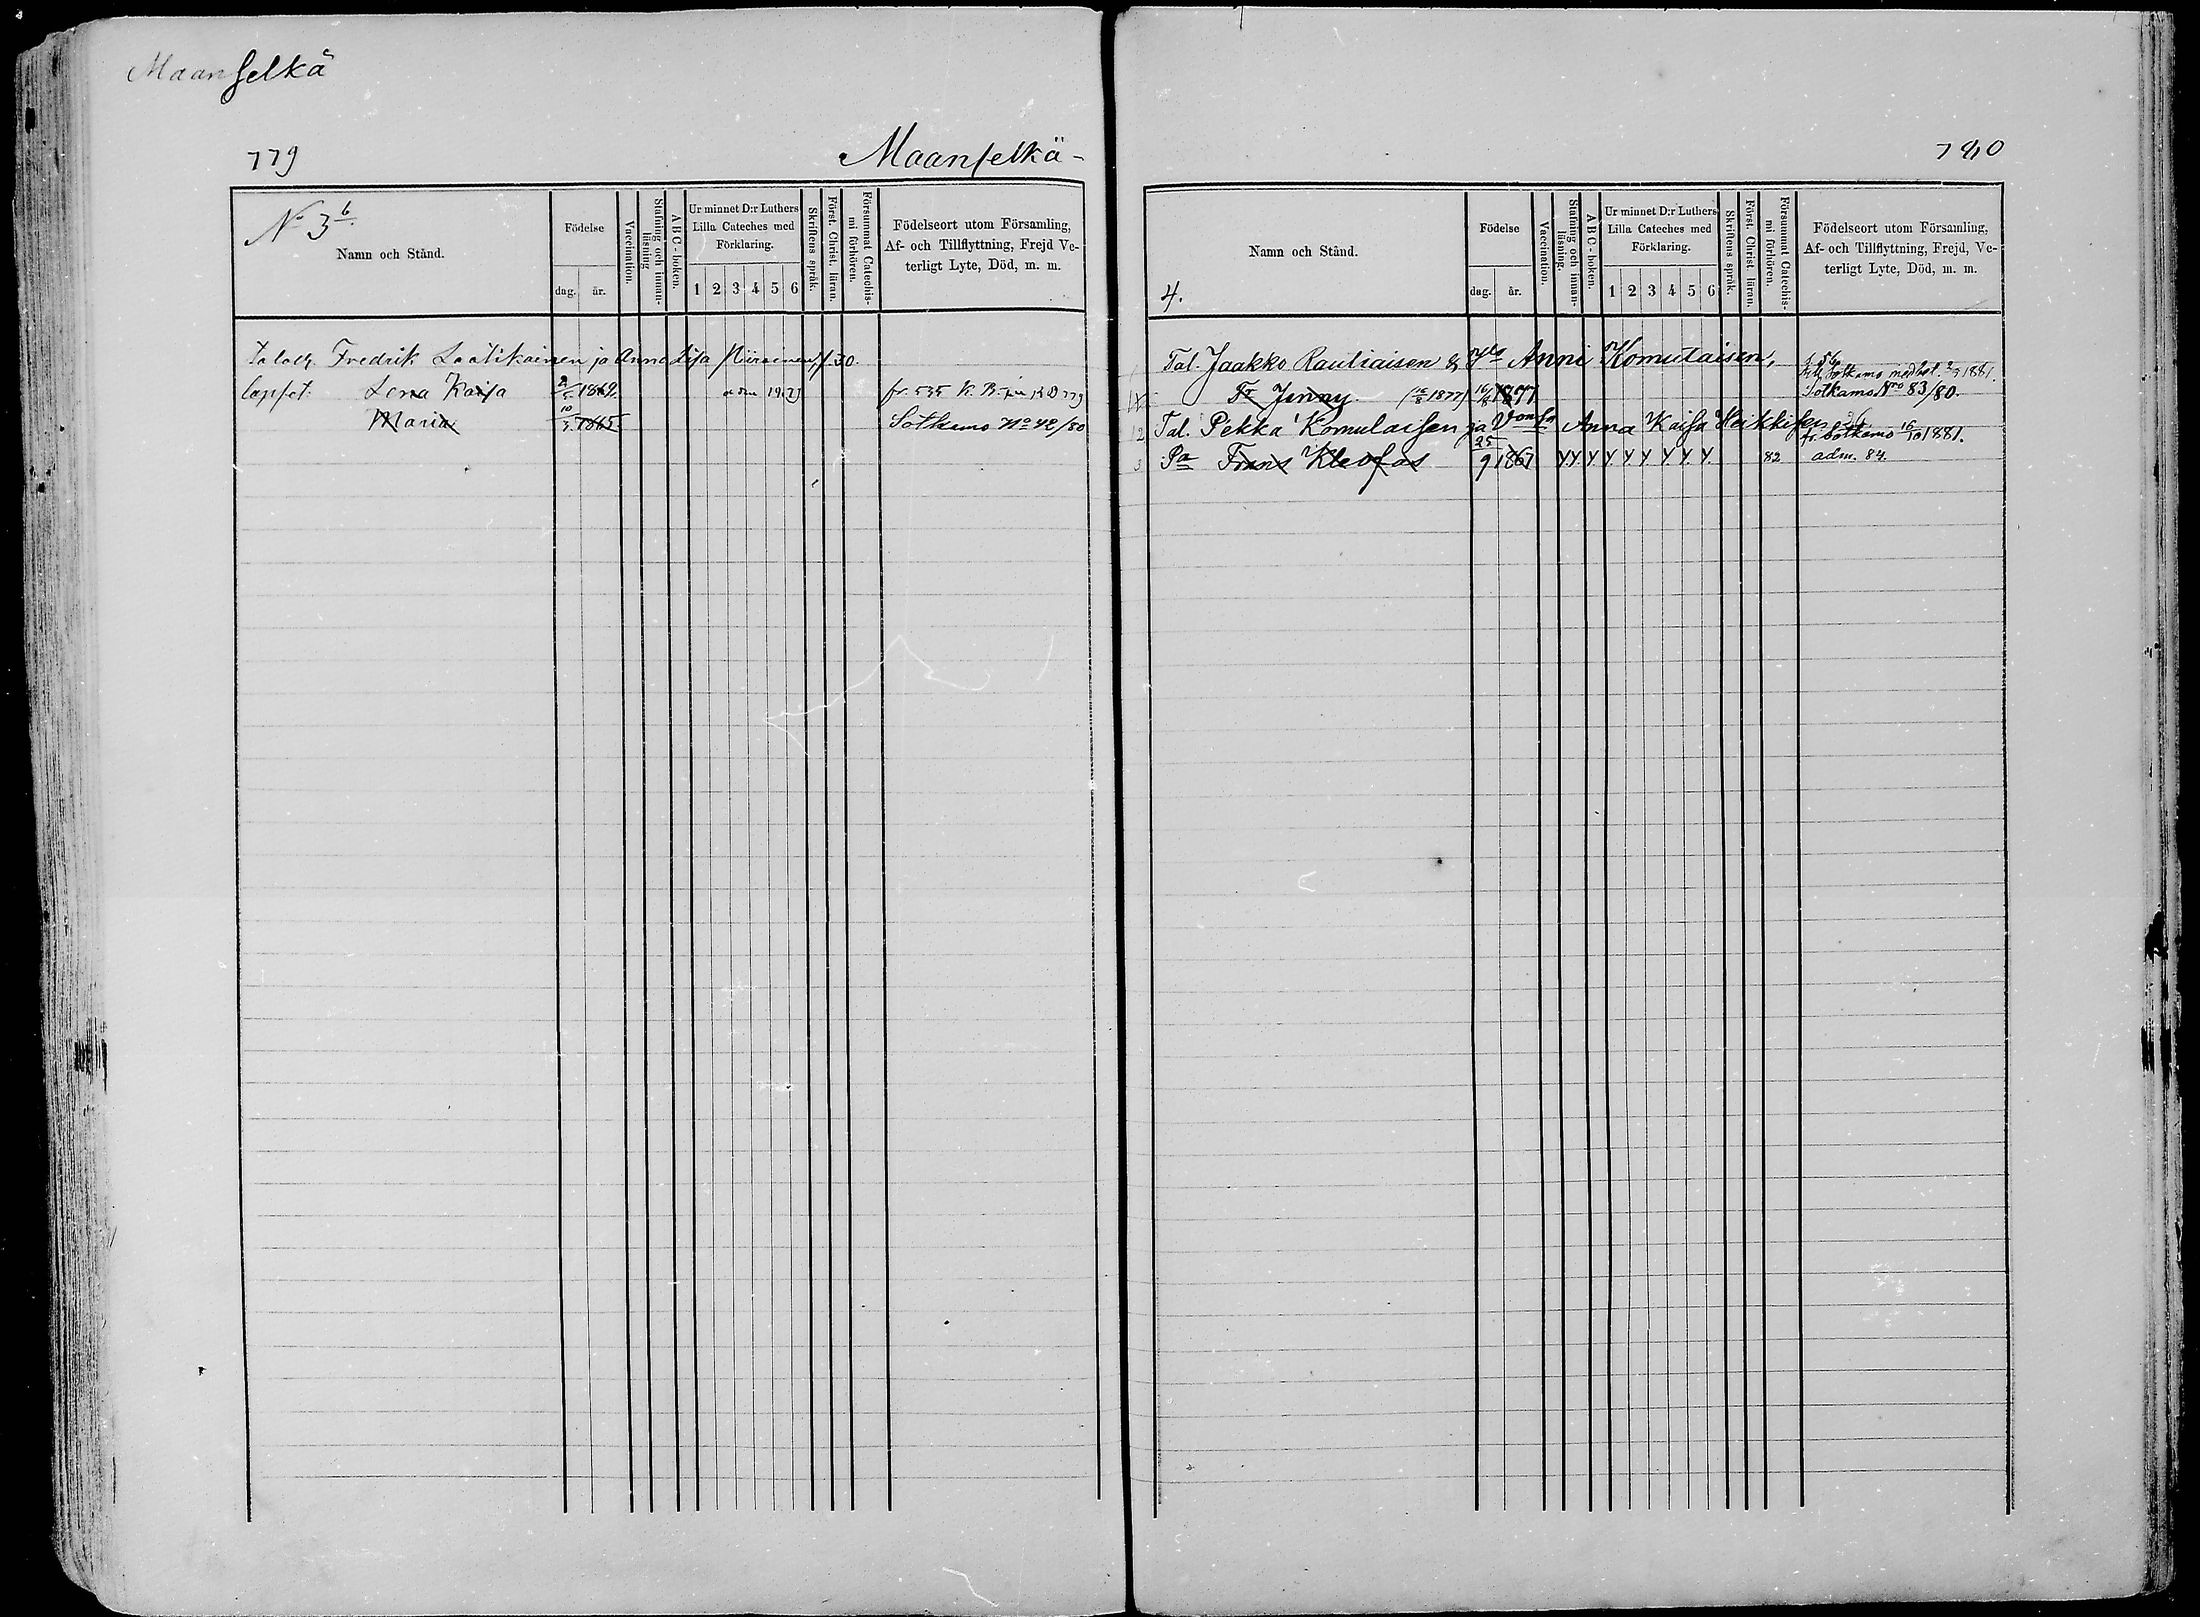 Maanselkä
779
Maanselkä-
No 3 b.
Namn och Stånd.
Födelse
dag. år.
Vaccination.
Stafning och innanläsning
ABC-boken.
Ur minnet D:r Luthers Lilla Cateches med Förklaring.
1 2 3 4 5 6
Skriftens språk.
Först. Christ. läran.
Försummat Catechismi förhören.
Födelseort utom Församling, Af- och Tillflyttning, Frejd Veterligt Lyte, Död, m. m.
Fredrik Laatikainen ja Anna Lisa Piirainen, f. 30.
lapset: Lena Kaisa 2/5 1862.
Maria 10/3 1865. Sotkamo No 42/80
780
4.
Namn och Stånd.
Födelse
dag. år.
Vaccination.
Stafning och innanläsning.
ABC-boken.
Ur minnet D:r Luthers Lilla Cateches med Förklaring.
1 2 3 4 5 6
Skriftens språk.
Först. Christ. läran.
Försummat Catechismi förhören.
Födelseort utom Församling, Af- och Tillflyttning, Frejd, Veterligt Lyte, Död, m. m.
1 Tal. Jaakko Rautiaisen & Anni Komulaisen,
Tr Jenny (16/8 1877) 16/8 1877 Sotkamo Nro 83/80.
2 Tal. Pekka Komulaisen ja Anna Kaisa Heikkisen fr. Sotkamo 16/10 1881.
3 Pa Frans Kleofas 25/9 1867 82 adm. 84.